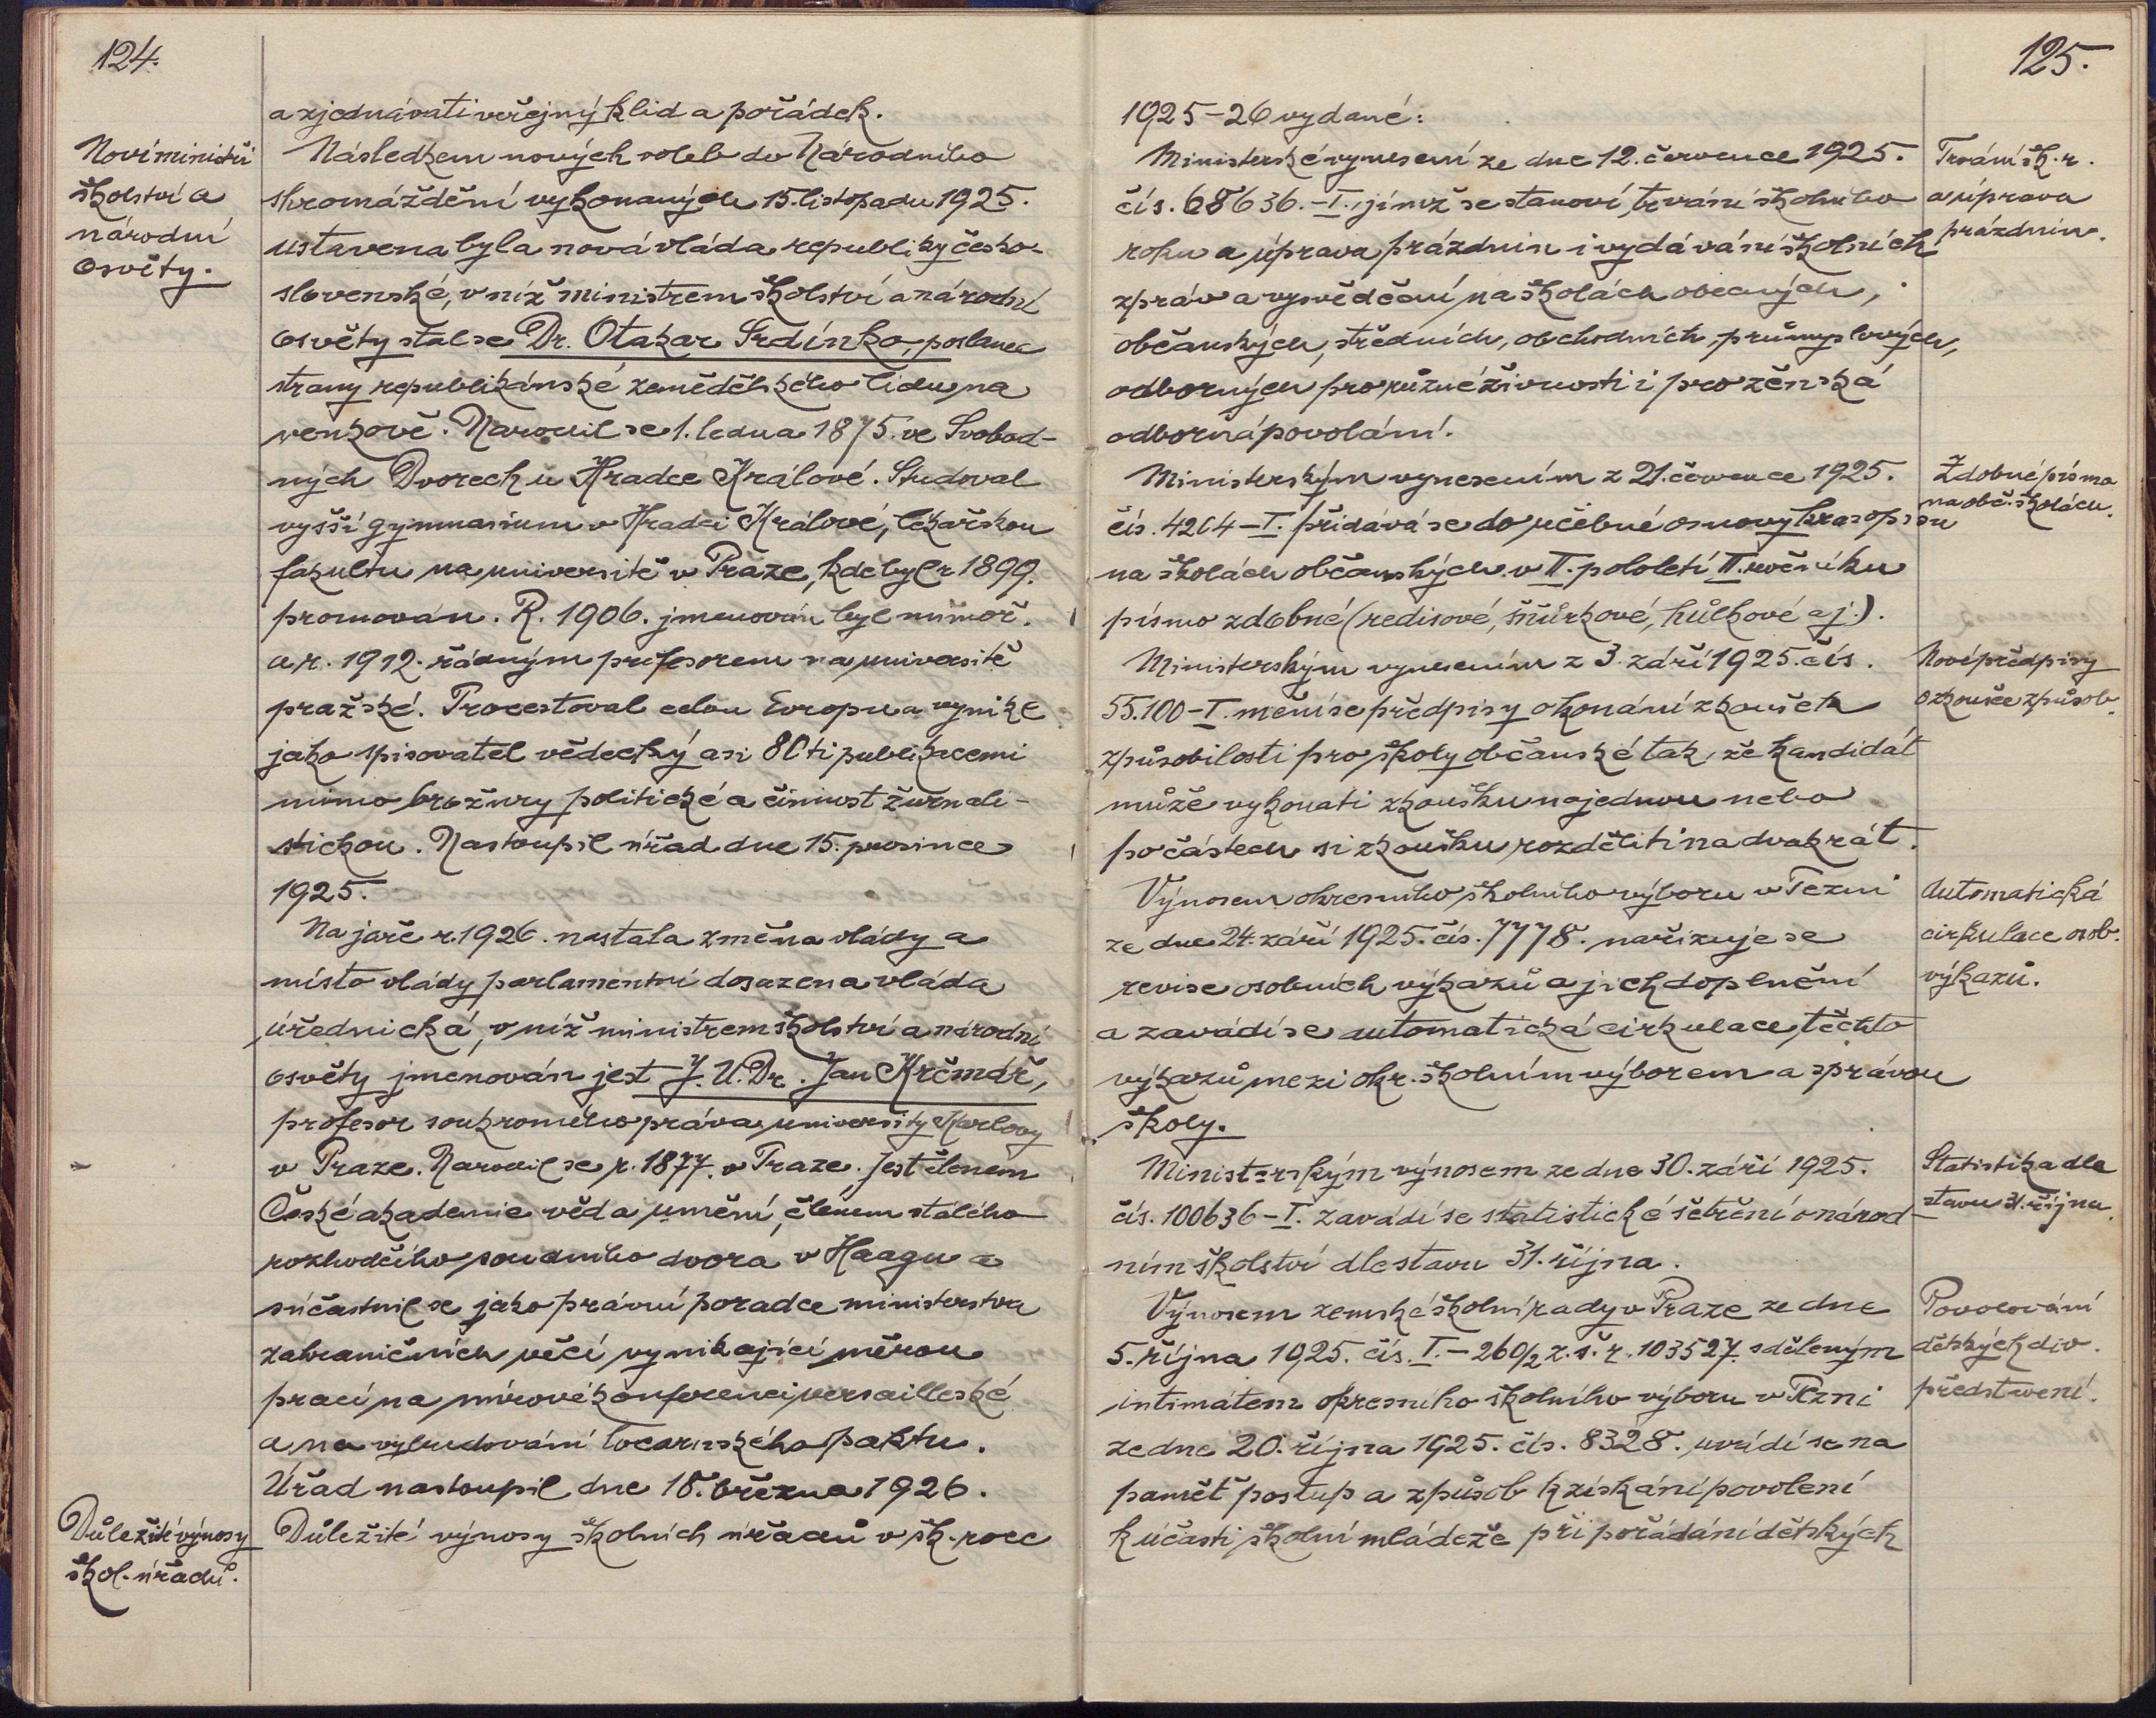 124.
a zjednávati veřejný klid a pořádek.
Noví ministři
školství a
národní
osvěty.
Následkem nových voleb do Národního
shromáždění vykonaných 15. listopadu 1925.
ustavena byla nová vláda republiky česko-
slovenské, v níž ministrem školství a národní
osvěty stal se Dr. Otakar Srdínko, poslanec
strany republikánské zemědělského lidu na
venkově. Narodil se 1. ledna 1875. ve Svobod-
ných Dvorech u Hradce Králové. Studoval
vyšší gymnasium v Hradci Králové, lékařskou
fakultu na universitě v Praze, kde byl r 1899.
promován. R. 1906. jmenován byl mimoř.
a r. 1912. řádným profesorem na universitě
pražské. Procestoval celou Evropu a vynikl
jako spisovatel vědecký asi 80ti publikacemi
mimo brožury politické a činnost žurnali-
stickou. Nastoupil úřad dne 15. prosince
1925.
Na jaře r. 1926. nastala změna vlády a
místo vlády parlamentní dosazena vláda
úřednická, v níž ministrem školství a národní
osvěty jmenován jest J. U. Dr. Jan Krčmář,
profesor soukromého práva university Karlovy
v Praze. Narodil se r. 1877. v Praze. Jest členem
České akademie věd a umění, členem stálého
rozhodčího soudního dvora v Haagu a
súčastnil se jako právní poradce ministerstva
zahraničních věcí vynikající měrou
prací na mírové konferenci versailleské
a na vybudování locarnského paktu.
Úřad nastoupil dne 18. března 1926.
Důležité výnosy
škol. úřadů.
Důležité výnosy školních úřadů v šk. roce
125.
1925-26 vydané:
Ministerské vynesení ze dne 12. července 1925.
čís. 68636.-I., jímž se stanoví trvání školního
roku a úprava prázdnin i vydávání školních
zpráv a vysvědčení na školách obecných,
občanských, středních, obchodních, průmyslových,
odborných pro různé živnosti i pro ženská
odborná povolání.
Trvání šk. r.
a úprava
prázdnin.
Ministerským vynesením z 21. července 1925.
čís. 4204-I. přidává se do učebné osnovy krasopisu
na školách občanských v II. pololetí II. ročníku
písmo zdobné (redisové, šňůrkové, hůlkové aj.).
Zdobné písmo
na obč. školách.
Ministerským vynesením z 3. září 1925. čís.
55.100-I. mění se předpisy o konání zkoušek
způsobilosti pro školy občanské tak, že kandidát
může vykonati zkoušku najednou nebo
po částech si zkoušku rozděliti na dvakrát.
Nové předpisy
o zkoušce způsob.
Výnosem okresního školního výboru v Plzni
ze dne 24. září 1925. čís. 7778. nařizuje se
revise osobních výkazů a jich doplnění
a zavádí se automatická cirkulace těchto
výkazů mezi okr. školním výborem a správou
školy.
Automatická
cirkulace osob.
výkazů.
Ministerským výnosem ze dne 30. září 1925.
čís. 100636-I. zavádí se statistické šetření o národ-
ním školství dle stavu 31. října.
Statistika dle
stavu 31. října.
Výnosem zemské školní rady v Praze ze dne
5. října 1925. čís. I.-260/2 z. š. r. 103527. sděleným
intimátem okresního školního výboru v Plzni
ze dne 20. října 1925. čís. 8328. uvádí se na
paměť postup a způsob k získání povolení
k účasti školní mládeže při pořádání dětských
Povolování
dětských div.
představení.